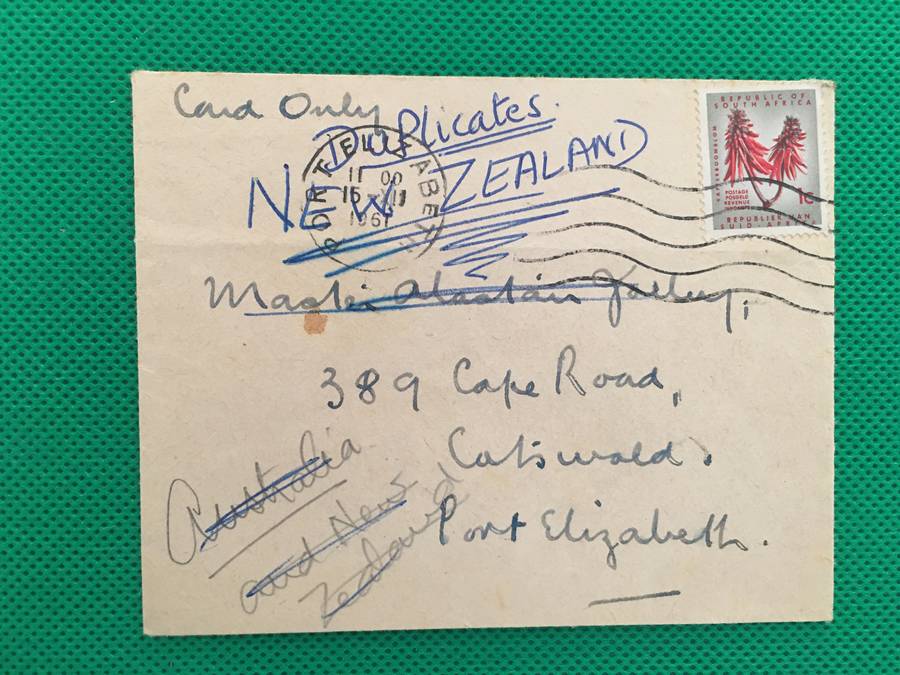 Card Only
Duplicates.
NEW ZEALAND
PORT ELIZABETH
11 00
15 XII
1961
REPUBLIC OF
SOUTH AFRICA
POSTAGE
POSGELD
REVENUE
INKOMSTE
1c
REPUBLIEK VAN
SUID-AFRIKA
Master Alastair
389 Cape Road,
Cotswold.
Port Elizabeth.
Australia
and New
Zealand